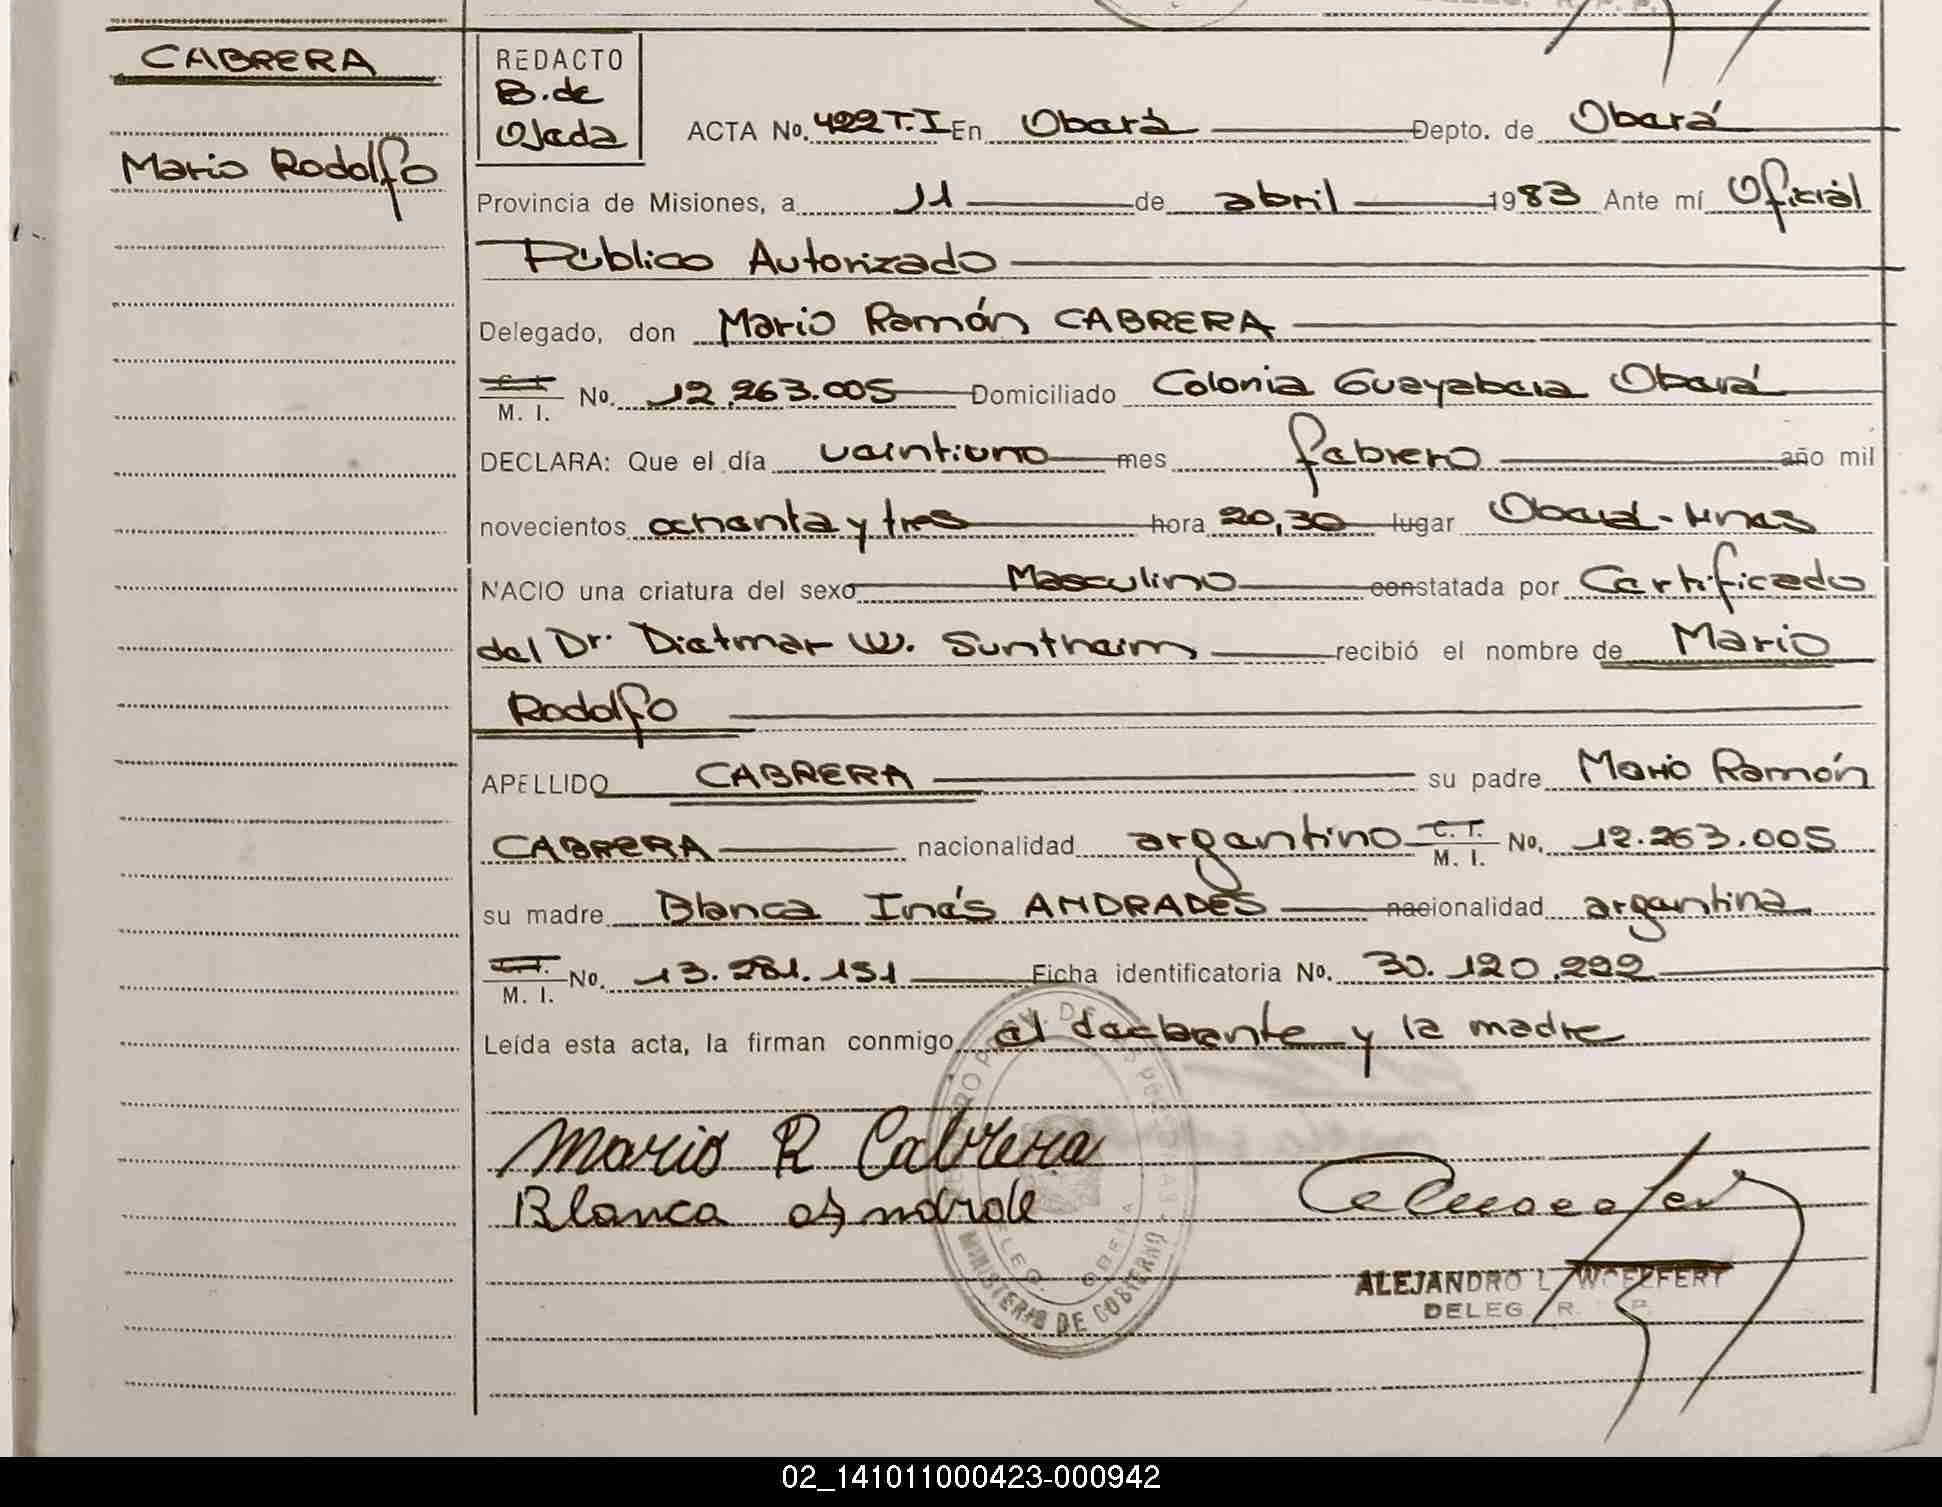 CABRERA
Mario Rodolfo
REDACTO
B. de
Ojeda
ACTA No. 422 T.I En Oberá Depto. de Oberá
Provincia de Misiones, a 11 de abril 1983 Ante mí Oficial
Público Autorizado
Delegado, don Mario Ramón CABRERA
M. I. No. 12.263.005 Domiciliado Colonia Guayabera Oberá
DECLARA: Que el día veintiuno mes febrero año mil
novecientos ochenta y tres hora 20,30 lugar Oberá-Mnes
NACIO una criatura del sexo Masculino constatada por Certificado
del Dr. Dietmar W. Suntheim recibió el nombre de Mario
Rodolfo
APELLIDO CABRERA su padre Mario Ramón
CABRERA nacionalidad argentino C. I. M. I. No. 12.263.005
su madre Blanca Inés ANDRADES nacionalidad argentina
M. I. No. 13.281.151 Ficha identificatoria No. 30.120.222
Leída esta acta, la firman conmigo el declarante y la madre
Mario R Cabrera
Blanca Andrade
MINISTERIO DE GOBIERNO
ALEJANDRO L. WOELFERT
DELEG. R. P.
02_141011000423-000942